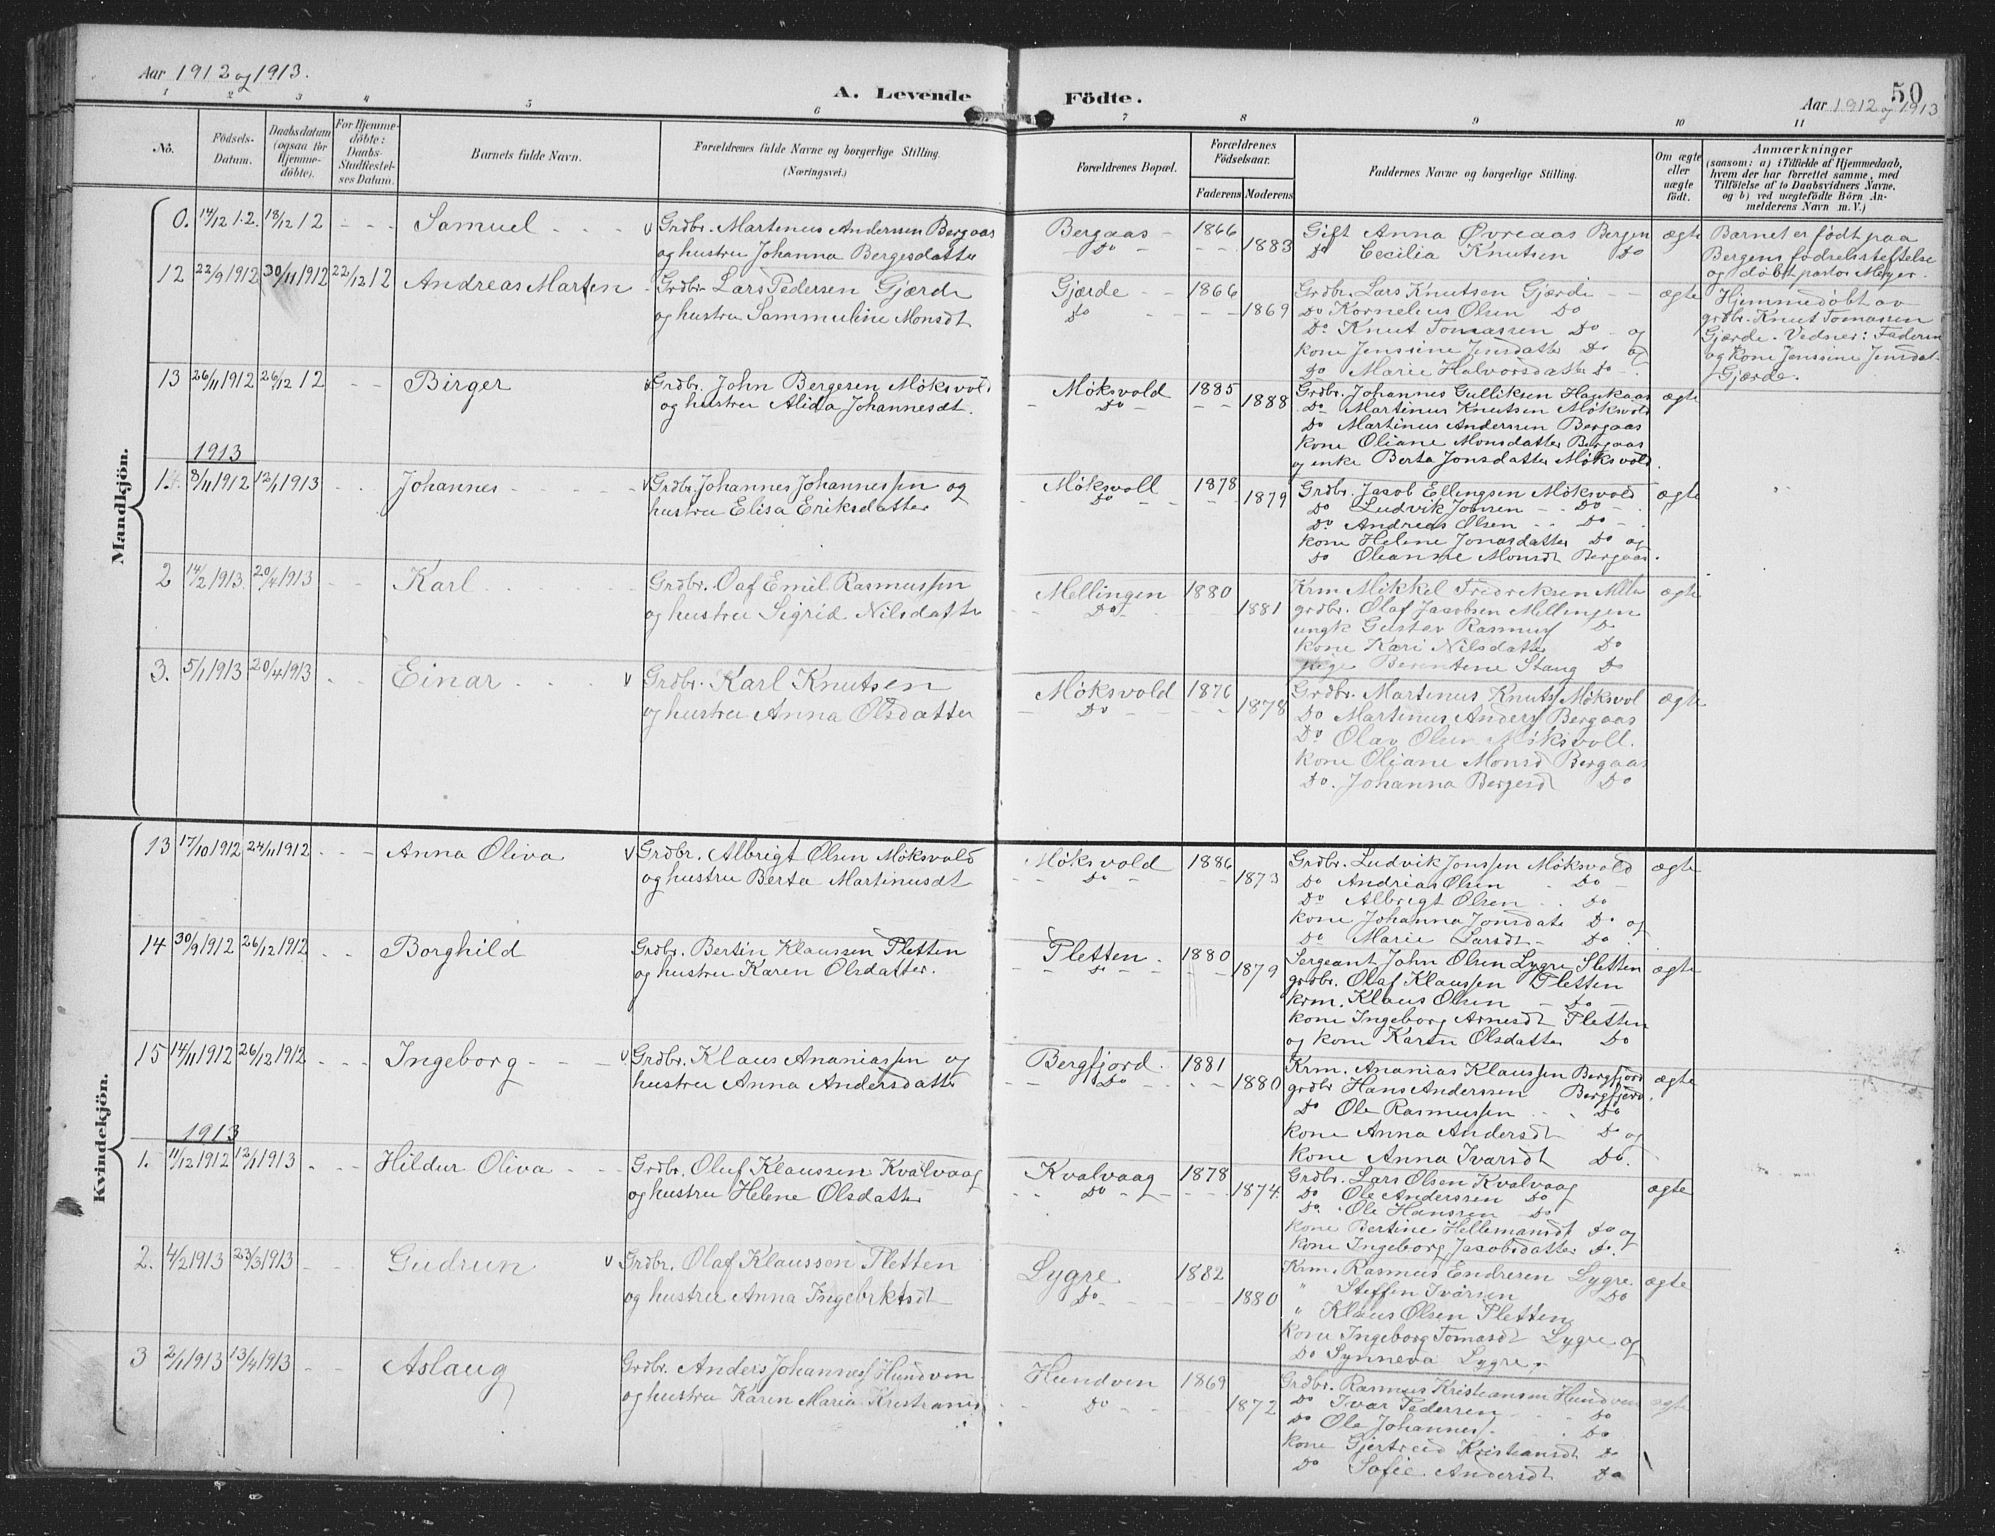 Aar 1912 og 1913.
A. Levende Födte.
50
Aar 1912 og 1913
1 2 3 4 5 6 7 8 9 10 11
No.
Födsels-Datum.
Daabsdatum (ogsaa for Hjemme-döbte).
For Hjemme-döbte: Daabs-Stadfæstel-ses Datum.
Barnets fulde Navn.
Forældrenes fulde Navne og borgerlige Stilling. (Næringsvei.)
Forældrenes Bopæl.
Forældrenes Födselsaar.
Faderens Moderens
Faddernes Navne og borgerlige Stilling.
Om ægte eller uægte födt.
Anmærkninger
(saasom: a) i Tilfælde af Hjemmedaab, hvem der har forrettet samme, med Tilföielse af to Daabsvidners Navne. og b) ved uægtefödte Börn Anmelderens Navn m.V.)
Mandkjön.
0. 14/12 12. 18/12 12 - - - Samuel - - - v Grdbr. Martinus Anderssen Bergaas
og hustru Johanna Bergesdatter
Bergaas - 1866
Do - - - 1883
Gift Anna Øvreaas Bergen ægte
Do Cecilia Knutsen Do
Barnet er født paa
Bergens fødselsstiftelse
og døbt pastor Meyer.
12 22/9 1912 30/11 1912 22/12 12 Andreas Marten Grdbr Lars Pedersen Gjærde
og hustru Sammuline Monsdt
Gjærde - - 1866
Do - - 1869
Grdbr. Lars Knutsen Gjærde - - ægte
Do Kornelius Olsen Do
Do Knut Tomassen Do og
kone Jenssine Jensdatter Do og
Do Marie Halvorsdatter Do
Hjemmedøbt av
grdbr. Knut Tomassen
Gjærde. Vedner: Faderen
og Kone Jenssine Jensdat-
Gjærde.
13 26/11 1912 26/12 12 - - Birger v Grdbr. John Bergesen Møksvold
og hustru Alida Johannesdt.
Møksvold 1885
Do - 1888
Grdbr. Johannes Gulliksen Haukaas ægte
Do Martinus Knutsen Møksvold
Do Martinus Anderssen Bergaas
kone Oliane Monsdatter Bergaas
og enke Berta Jonsdatter Møksvold.
1913
1. 8/11 1912 12/1 1913 - - Johannes - - - v Grdbr. Johannes Johannessen og
hustru Elisa Eriksdatter
Møksvoll 1878
Do - - 1879
Grdbr. Jacob Ellingsen Møksvold ægte
Do Ludvik Jonsen - - Do - -
Do Andreas Olsen - - Do -
kone Helene Jonasdatter Do og
Do Oleanne Monsdt Bergaas.
2 14/2 1913. 20/4 1913 - - Karl - - - Grdbr. Oaf Emil Rasmussen
og hustru Sigrid Nilsdatte
Mellingen 1880
Do - 1881
Krm Mikkel Fredriksen Mla ægte
grdbr. Olaf Jacobsen Mellingen
ungk Gustav Rasmuss Do
kone Kari Nilsdatter Do
pige Berentene Stang Do
3. 5/1 1913 20/4 1913 - - Einar - - - v Grdbr. Karl Knutsen
og hustru Anna Olsdatter
Møksvold 1876
Do - - 1878
Grdbr. Martinus Knuts Møksvol ægte
Do Martinus Anders Bergaas
Do Olav Olsen Møksvoll.
kone Oliane Monsd Bergaas
Do. Johanna Bergesdt Do
Kvindekjön.
13 17/10 1912 24/11 1912 - - Anna Oliva v Grdbr. Albrigt Olsen Møksvold
og hustru Berta Martinusdt
Møksvold 1886
Do - 1873
Grdbr. Ludvik Jonssen Møksvold ægte
Do Andrias Olsen - Do -
Do Albrigt Olsen - - Do
kone Johanna Jonsdate Do og
Do Marie Larsdt - Do.
14 30/9 1912 26/12 1912 - - Borghild Grdbr. Bertin Klaussen Pletten
og hustru Karen Olsdatter.
Pletten. 1880
Do - - 1879
Sergeant John Olsen Lygre Sletten ægte
grdbr. Olaf Klaussen Pletten
krm. Klaus Olsen - Do -
kone Ingeborg Arnesdt Pletten
og kone Karen Olsdatter Do
15 14/11 1912 26/12 1912 - - Ingeborg - - v Grdbr. Klaus Ananiassen og
hustru Anna Andersdatter
Bergfjord. 1881
Do - - 1880
Krm. Ananias Klaussen Bergfjord ægte
grdbr Hans Anderssen Bergfjord.
Do Ole Rasmussen - - Do
kone Anna Andersdt Do og
kone Anna Ivarsdt Do.
1913
1. 11/12 1912 12/1 1913 - - Hildur Oliva - - Grdbr. Oluf Klaussen Kvalvaag
og hustru Helene Olsdatter
Kvalvaag 1878
Do - - 1874.
Grdbr. Lars Olsen Kvalvaag ægte
Do Ole Anderssen Do
Do Ole Hanssen Do
kone Bertine Hellemansdt Do og
kone Ingeborg Jacobsdatter Do.
2. 4/2 1913 23/3 1913 - - Gudrun v Grdbr. Olaf Klaussen Pletten
og hustru Anna Ingebrktsdt
Lygre 1882
Do - - 1880
Krm. Rasmus Endresen Lygre. ægte
" Steffen Ivarsen Do
" Klaus Olsen Pletten
kone Ingeborg Tomasdt Lygre og
Do Synneva Lygre.
3 2/1 1913 13/4 1913 - - Aslaug Grdbr. Anders Johanness Hundven
og hustru Karen Maria Kristians
Hundven 1869
Do - - 1872
Grdbr. Rasmus Kristiansen Hundven ægte
Do Ivar Pedersen - Do
Do Ole Johanness. - Do
kone Gjertreid Kristiansdt Do
Do Sofie Andersdt Do